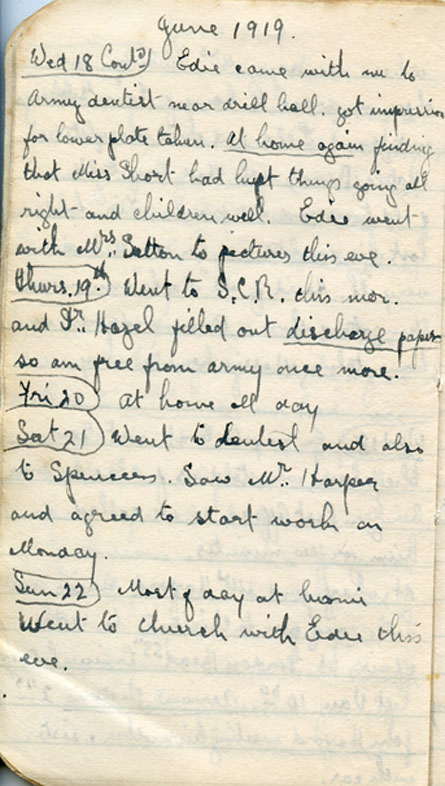 June 1919.
Wed 18 Contd) Edie came with me to
Army dentist near drill hall. got impression
for lower plate taken. At home again finding
that Miss Short had kept things going all
right and children well. Edie went
with Mrs. Sutton to pictures this eve.
Thurs. 19th) Went to S.C.R. this mor.
and Dr. Hazel filled out discharge paper
so am free from army once more.
Fri 20) At home all day
Sat 21) Went to dentist and also
to Spencers. Saw Mr. Harper
and agreed to start work on
Monday.
Sun 22) Most of day at home
Went to church with Edie this
eve.